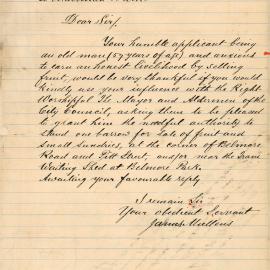 Dear Sir,
Your humble applicant being
an old man (57 years of age) and anxious
to earn an honest livelihood by selling
fruit, would be very thankful if you would
kindly use your influence with the Right
Worshipful The Mayor and Aldermen of the
City Council, asking them to be pleased
to grant him the needful authority to
stand one barrow for Sale of fruit and
Small Sundries, at the corner of Belmore
Road and Pitt Street, and/or near the Tram
Waiting Shed at Belmore Park.
Awaiting your favourable reply
I remain Sir
Your obedient Servant
James Mullens